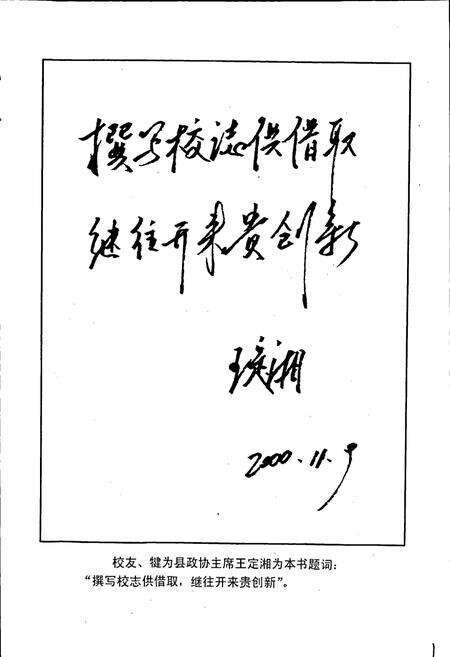 撰写校誌供借取
继往开来贵创新
王定湘
2000.11.9
校友、犍为县政协主席王定湘为本书题词：
“撰写校志供借取，继往开来贵创新”。